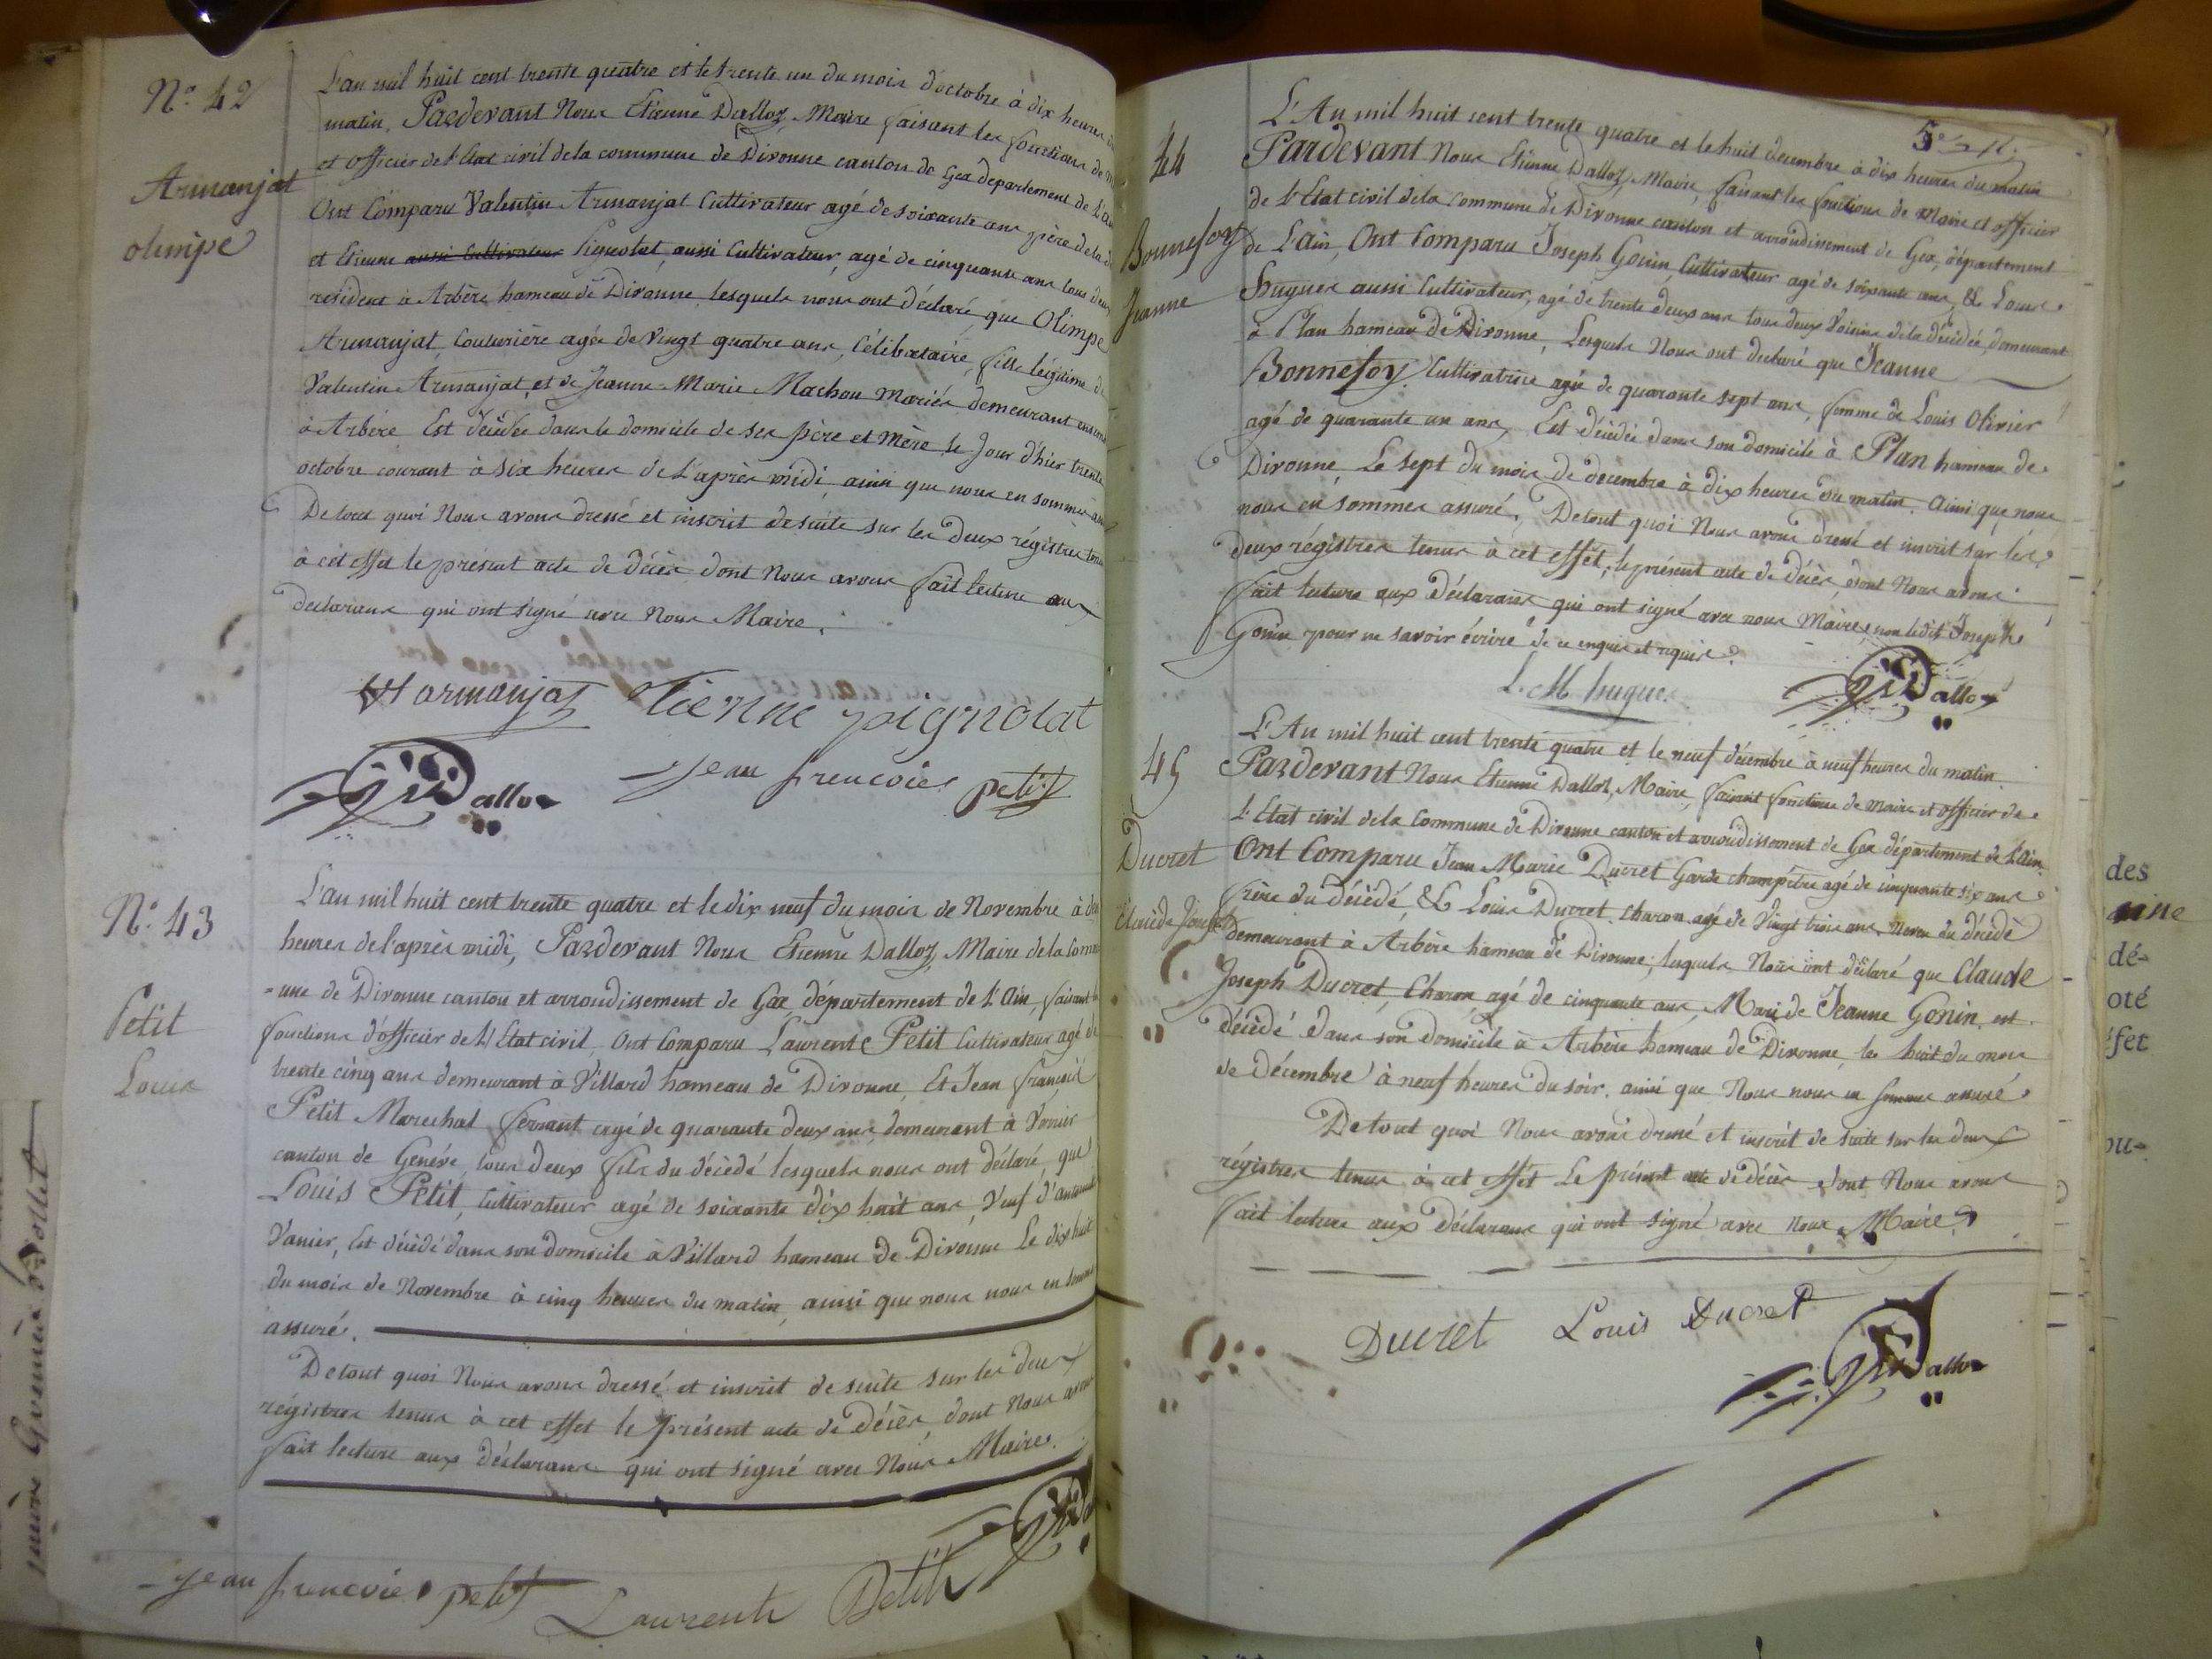 N.o 42
Armanjat
olimpe
L'an mil huit cent trente quatre et le trente un du mois d'octobre à dix heures
matin, Pardevant Nous Etienne Dalloz, Maire faisant les fonctions de
et officier de l'Etat civil de la commune de Divonne canton de Gex departement de L'ain
Ont Comparu Valentin Armanjat Cultivateur agé de soixante ans père de la
et Etienne aussi Cultivateur Pignolat, aussi Cultivateur, agé de cinquante ans tous deux
résident à Arbère hameau de Divonne, lesquels nous ont déclaré que Olimpe
Armanjat, Couturière agée de vingt quatre ans, Célibataire, fille légitime de
Valentin Armanjat, et de Jeanne-Marie Machou mariés demeurant
à Arbère Est décédée dans le domicile de ses père et mère le Jour d'hier trente
octobre courant à six heures de l'après midi, ainsi que nous en sommes
De tout quoi Nous avons dressé et inscrit de suite sur les deux régistres tenus
à cet effet le présent acte de décès dont Nous avons fait lecture aux
declarans qui ont signé avec Nous Maire.
armanjat Etienne pignolat
Dalloz jean francoies petit
N.o 43
Petit
Louis
L'an mil huit cent trente quatre et le dix neuf du mois de Novembre à
heures de l'après midi, Pardevant Nous Etienne Dalloz, Maire de la Comm
-une de Divonne canton et arrondissement de Gex, département de L'Ain, faisant
fonctions d'officier de L'Etat civil, Ont Comparu Laurent Petit Cultivateur agé de
trente cinq ans demeurant à Villard hameau de Divonne, Et Jean français
Petit Marechal ferrant agé de quarante deux ans demeurant à
canton de Genève, tous deux fils du décédé lesquels nous ont déclaré, que
Louis Petit, Cultivateur agé de soixante dix huit ans, Veuf d'
Vanier, Est décédé dans son domicile à Villard hameau de Divonne Le dix huit
du mois de Novembre à cinq heures du matin, ainsi que nous nous en sommes
assuré.
De tout quoi Nous avons dressé et inscrit de suite sur les deux
régistres tenus à cet effet le présent acte de décès, dont Nous avons
fait lecture aux déclarans qui ont signé avec Nous Maire.
jean francoies petit Laurent Petit
44
Bonnefoy
Jeanne
L'An mil huit cent trente quatre et le huit decembre à dix heures du matin
Pardevant Nous Etienne Dalloz, Maire, faisant les fonctions de Maire et officier
de L'Etat civil de la Commune de Divonne canton et arrondissement de Gex, département
de L'ain, Ont Comparu Joseph Gonin, Cultivateur agé de soixante ans, & Louis
Hugues aussi Cultivateur, agé de trente deux ans tous deux Voisins de la décédée, demeurant
à Plan hameau de Divonne, Lesquels Nous ont declaré que Jeanne
Bonnefoy, Cultivatrice agée de quarante sept ans, femme de Louis Olivier
agé de quarante un ans, Est décédée dans son domicile à Plan hameau de
Divonne, Le sept du mois de decembre à dix heures du matin. Ainsi que nous
nous en sommes assuré, De tout quoi Nous avons dressé et inscrit sur les
deux régistres tenus à cet effet, le présent acte de décès, dont Nous avons
fait lecture aux déclarans qui ont signé avec nous Maire, non ledit Joseph
Gonin pour ne savoir écrire de ce enquis et requis.
L. M hugues Dalloz
45
Ducret
Claude Joseph
L'An mil huit cent trente quatre et le neuf décembre à neuf heures du matin
Pardevant Nous Etienne Dalloz, Maire, faisant fonctions de maire et officier de
L'Etat civil de la Commune de Divonne canton et arrondissement de Gex département de L'Ain
Ont Comparu Jean Marie Ducret Garde champêtre agé de cinquante six ans
frère du décédé, & Louis Ducret, Charon agé de Vingt trois ans, Neveu du décédé
demeurant à Arbère hameau de Divonne, lesquels Nous ont déclaré que Claude
Joseph Ducret, Charon, agé de cinquante ans, Mari de Jeanne Gonin, est
décédé dans son domicile à Arbère hameau de Divonne, le huit du mois
de Décembre à neuf heures du soir, ainsi que Nous nous en sommes assuré
De tout quoi Nous avons dressé et inscrit de suite sur les deux
régistres tenus à cet effet Le présent acte de décès dont Nous avons
fait lecture aux déclarans qui ont signé avec nous Maire.
Ducret Louis Ducret
Dalloz
des
dé-
oté
fet
ou-